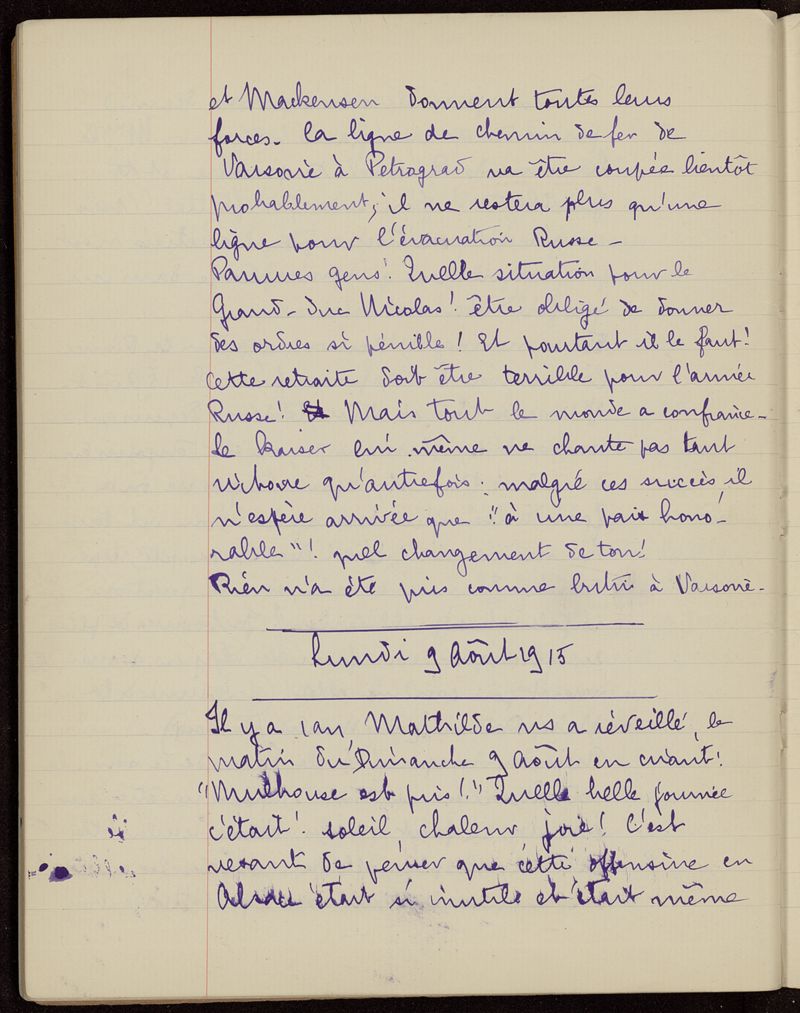 et Mackensen donnent toutes leurs
forces. La ligne de chemin de fer de
Varsovie à Petrograd va être coupée bientôt
probablement; il ne restera plus qu'une
ligne pour l'évacuation Russe –
Pauvres gens! Quelle situation pour le
Grand-duc Nicolas! être obligé de donner
des ordres si pénible! Et pourtant il le faut!
Cette retraite doit être terrible pour l'armée
Russe! Mais tout le monde a confiance –
Le Kaiser lui même ne chante pas tant
victoire qu'autrefois; malgré ces succès, il
n'espère arrivée que "à une paix hono-
rable"! quel changement de ton!
Rien n'a été pris comme butin à Varsovie –
Lundi 9 Août 1915
Il y a 1 an, Mathilde ns a réveillé, le
matin du Dimanche 9 Août en criant:
"Mulhouse est pris!" Quelle belle journée
c'était! soleil, chaleur, joie! C'est
vexant de penser que cette offensive en
Alsace était si inutile et était même